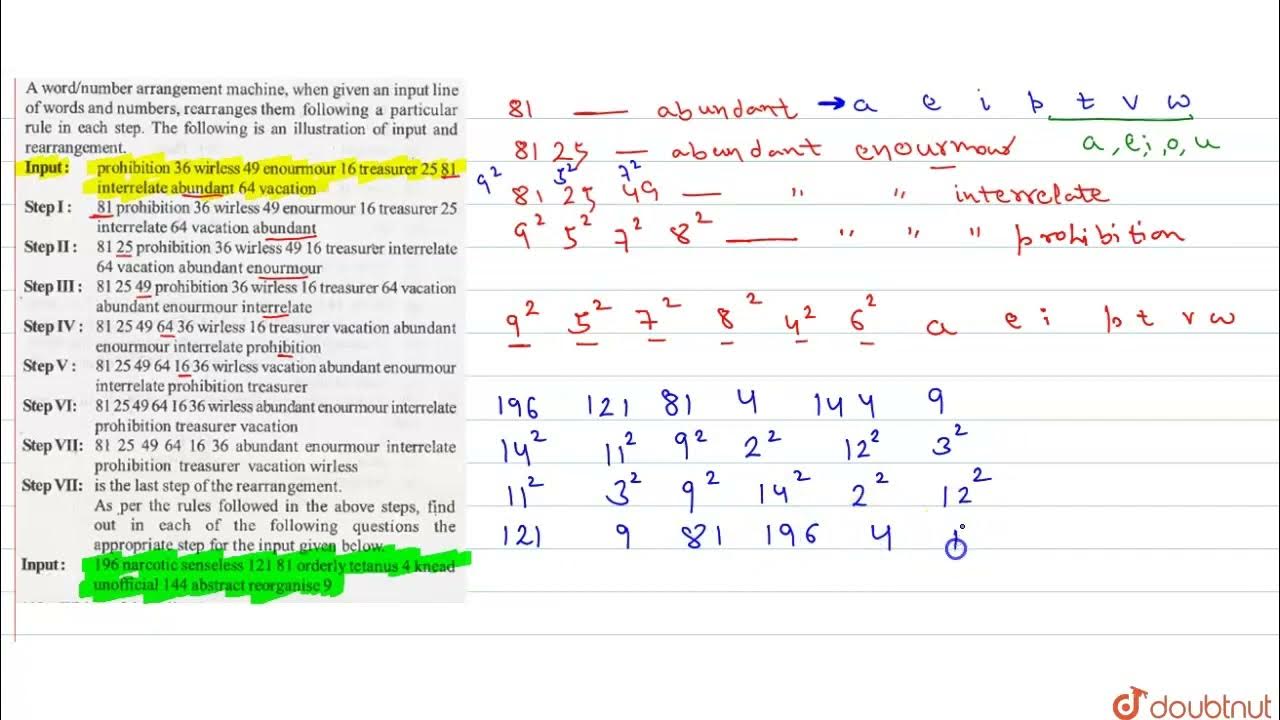 A word/number arrangement machine, when given an input line
of words and numbers, rearranges them following a particular
rule in each step. The following is an illustration of input and
rearrangement.
Input : prohibition 36 wirless 49 enourmour 16 treasurer 25 81
interrelate abundant 64 vacation
Step I : 81 prohibition 36 wirless 49 enourmour 16 treasurer 25
interrelate 64 vacation abundant
Step II : 81 25 prohibition 36 wirless 49 16 treasurer interrelate
64 vacation abundant enourmour
Step III : 81 25 49 prohibition 36 wirless 16 treasurer 64 vacation
abundant enourmour interrelate
Step IV : 81 25 49 64 36 wirless 16 treasurer vacation abundant
enourmour interrelate prohibition
Step V : 81 25 49 64 16 36 wirless vacation abundant enourmour
interrelate prohibition treasurer
Step VI: 81 25 49 64 16 36 wirless abundant enourmour interrelate
prohibition treasurer vacation
Step VII: 81 25 49 64 16 36 abundant enourmour interrelate
prohibition treasurer vacation wirless
Step VII: is the last step of the rearrangement.
As per the rules followed in the above steps, find
out in each of the following questions the
appropriate step for the input given below.
Input : 196 narcotic senseless 121 81 orderly tetanus 4 knead
unofficial 144 abstract reorganise 9
81 — abundant → a e i p t v w
a, e, i, o, u
81 25 — abundant enourmour
9² 5² 7²
81 25 49 — " " interrelate
9² 5² 7² 8² — " " " prohibition
9² 5² 7² 8² 4² 6² a e i p t v w
196 121 81 4 144 9
14² 11² 9² 2² 12² 3²
11² 3² 9² 14² 2² 12²
121 9 81 196 4 1
doubtnut